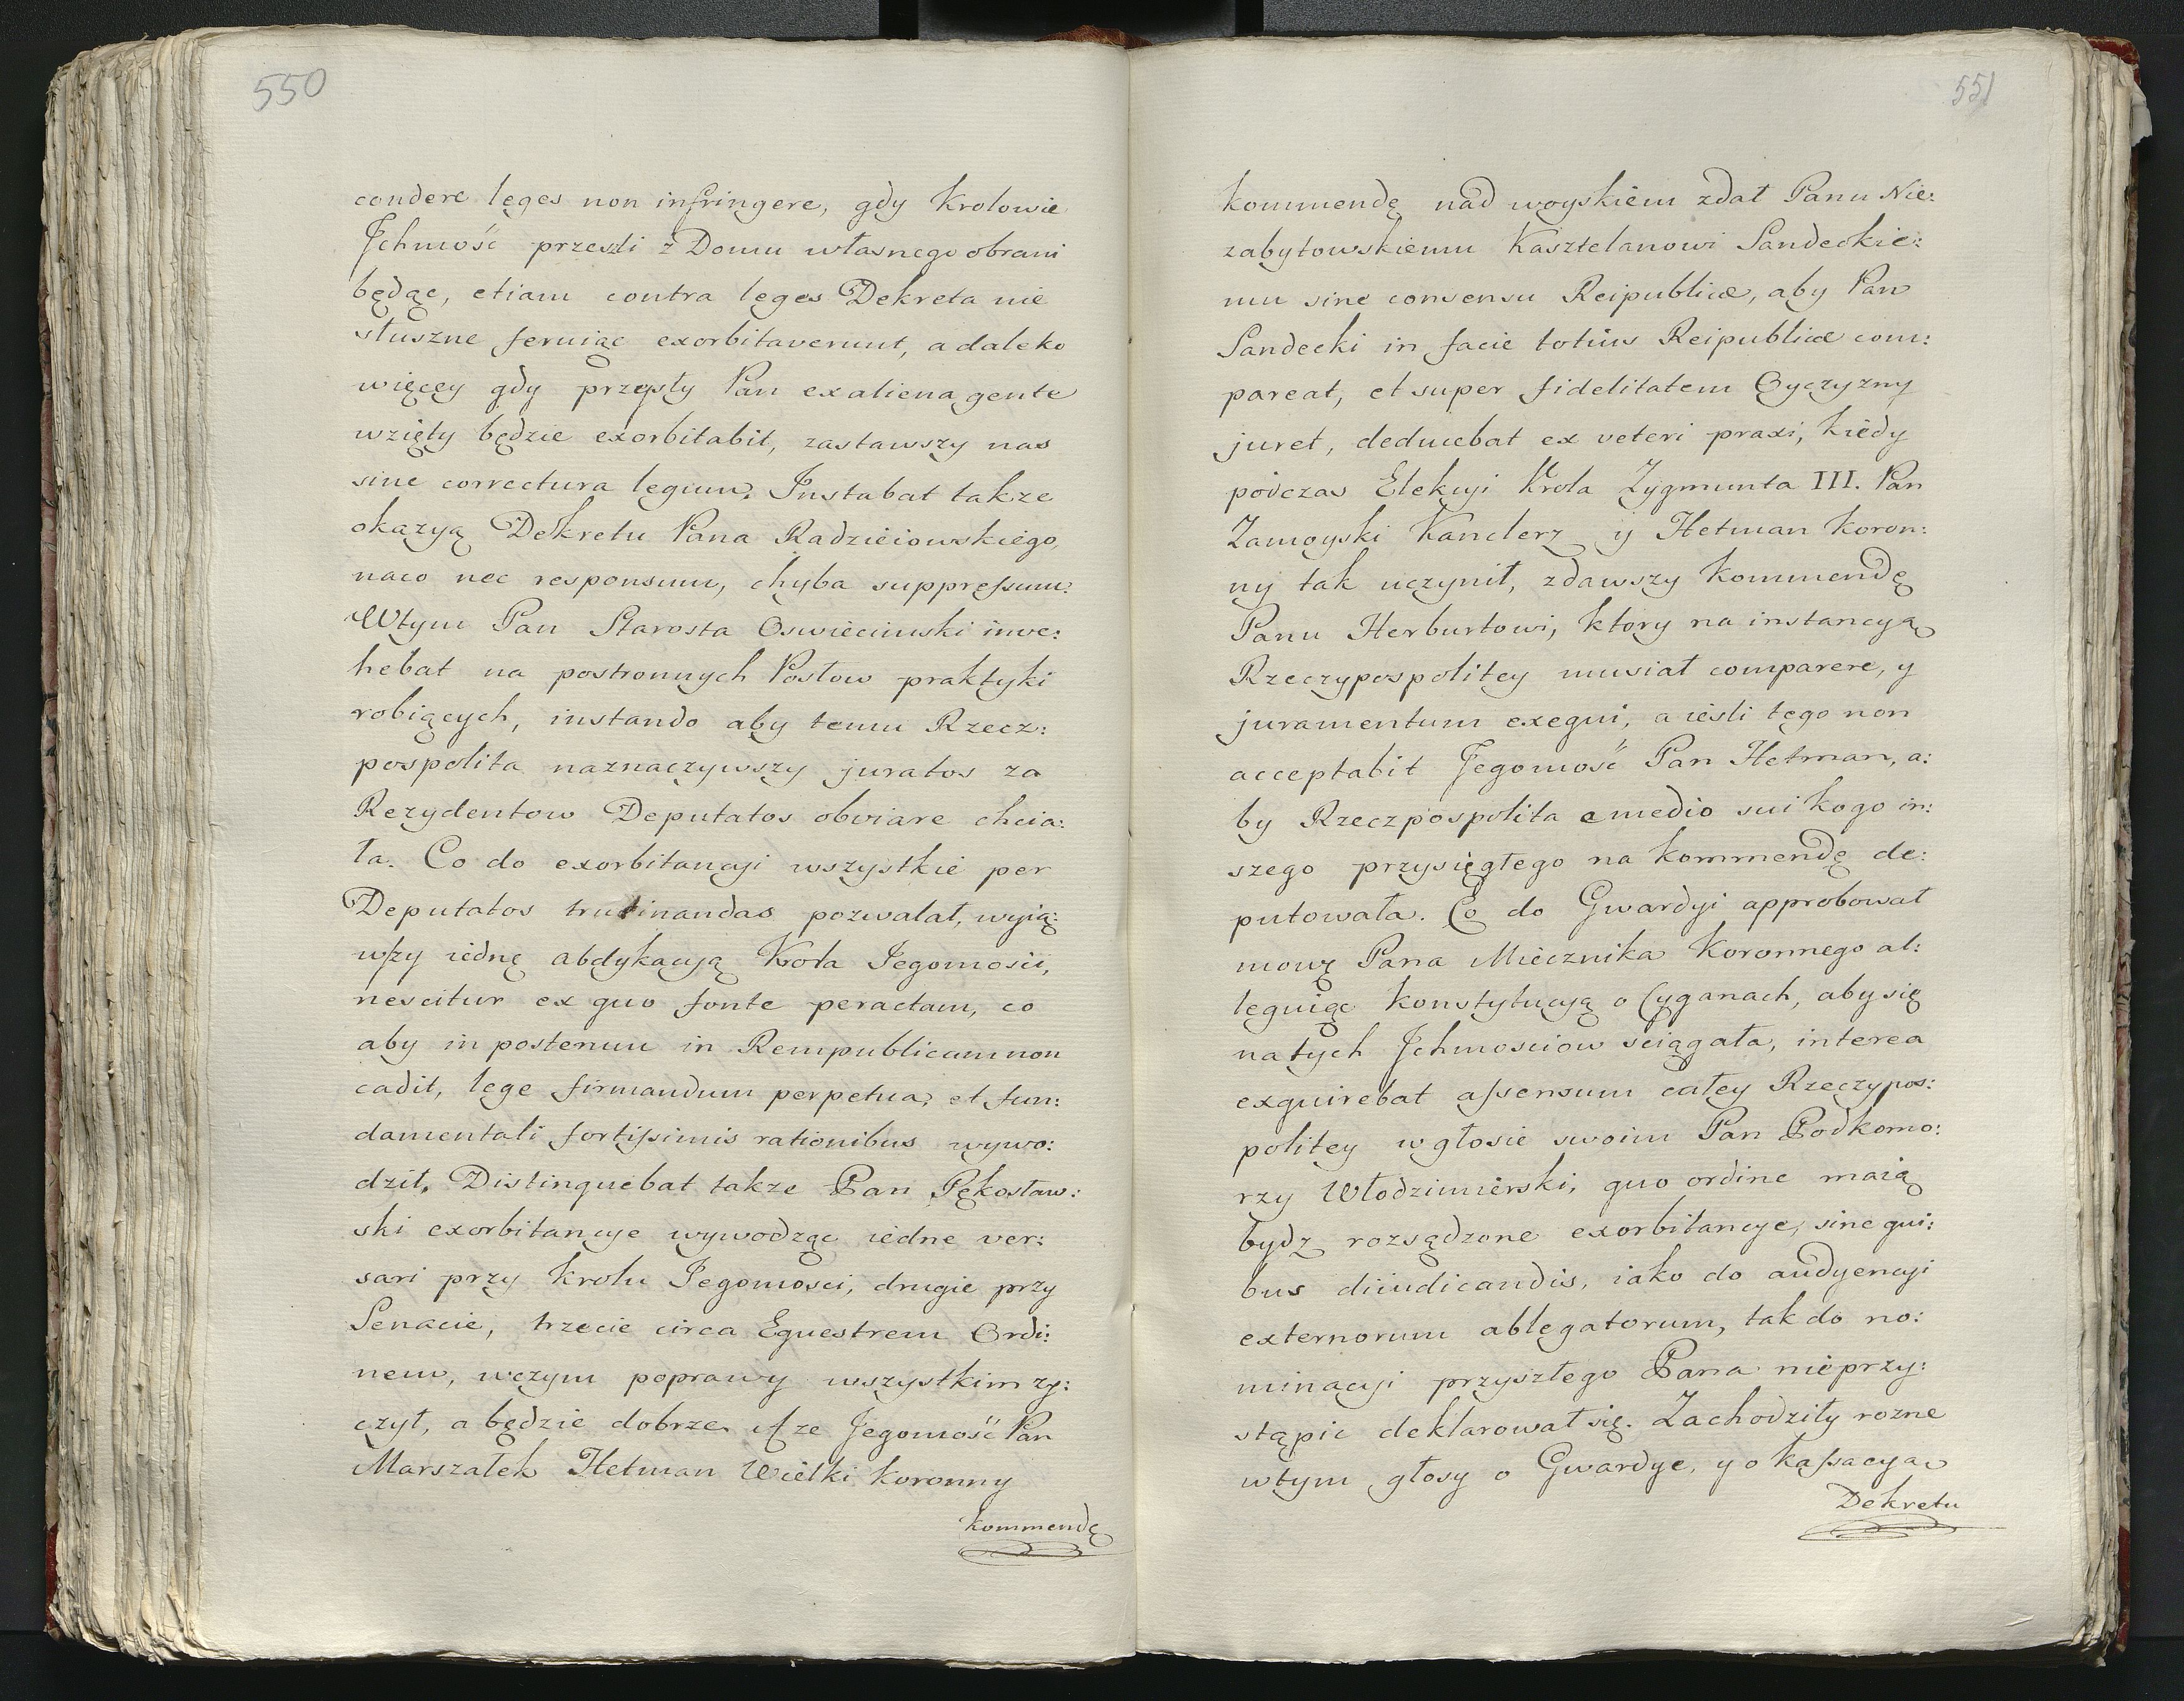 550
condere leges non infringere, gdy Krolowie
Jchmość przeszli z Domu własnego obrani
będąc, etiam contra leges Dekreta nie
słuszne feruiąc exorbitaverunt, a daleko
więcey gdy przyszły Pan ex aliena gente
wzięty będzie exorbitabit, zastawszy nas
sine correctura legum. Instabat takze
okazyą Dekretu Pana Radzieiowskiego,
naco nec responsum, chyba suppressum.
Wtym Pan Starosta Oswiecimski inve:
hebat na postronnych Posłow praktyki
robiących, instando aby temu Rzecz:
pospolita naznaczywszy juratos za
Rezydentow Deputatos obviare chcia:
ła. Co do exorbitancyi wszystkie per
Deputatos trutinandas pozwalał, wyią:
wszy iednę abdykacyą Krola Jegomosci,
nescitur ex quo fonte peractam, co
aby in posterum in Rempublicam non
cadit, lege firmandum perpetua, et fun:
damentali fortissimis rationibus wywo:
dził. Distinguebat takze Pan Pękosław:
ski exorbitancye wywodząc iedne ver:
sari przy Krolu Jegomosci, drugie przy
Senacie, trzecie circa Equestrem Ordi:
nem, wczym poprawy wszystkim zy:
czył, a będzie dobrze. A ze Jegomość Pan
Marszałek Hetman Wielki Koronny
Kommendę
551
kommendę nad woyskiem zdał Panu Nie:
zabytowskiemu Kasztelanowi Sandeckie:
mu sine consensu Reipublicæ, aby Pan
Sandecki in facie totius Reipublicæ com:
pareat, et super fidelitatem Oyczyzny
juret, deducebat ex veteri praxi, kiedy
podczas Elekcyi Krola Zygmunta III. Pan
Zamoyski Kanclerz y Hetman Koron:
ny tak uczynił, zdawszy Kommendę
Panu Herburtowi, ktory na instancyą
Rzeczypospolitey musiał comparere, y
juramentum exequi, a iesli tego non
acceptabit Jegomość Pan Hetman, a:
by Rzeczpospolita e medio sui kogo in:
szego przysięgłego na kommendę de:
putowała. Co do Gwardyi approbował
mowę Pana Miecznika Koronnego al:
leguiąc Konstytucyą o Cyganach, aby się
na tych Jchmosciow sciągała, interea
exquirebat assensum całey Rzeczypos:
politey w głosie swoim Pan Podkomo:
rzy Włodzimierski, quo ordine maią
bydz rozsądzone exorbitancye, sine qui:
bus diiudicandis, iako do audyencyi
externorum ablegatorum, tak do no:
minacyi przyszłego Pana nieprzy:
stąpic deklarował się. Zachodziły rozne
wtym głosy o Gwardye, y o kassacyą
Dekretu